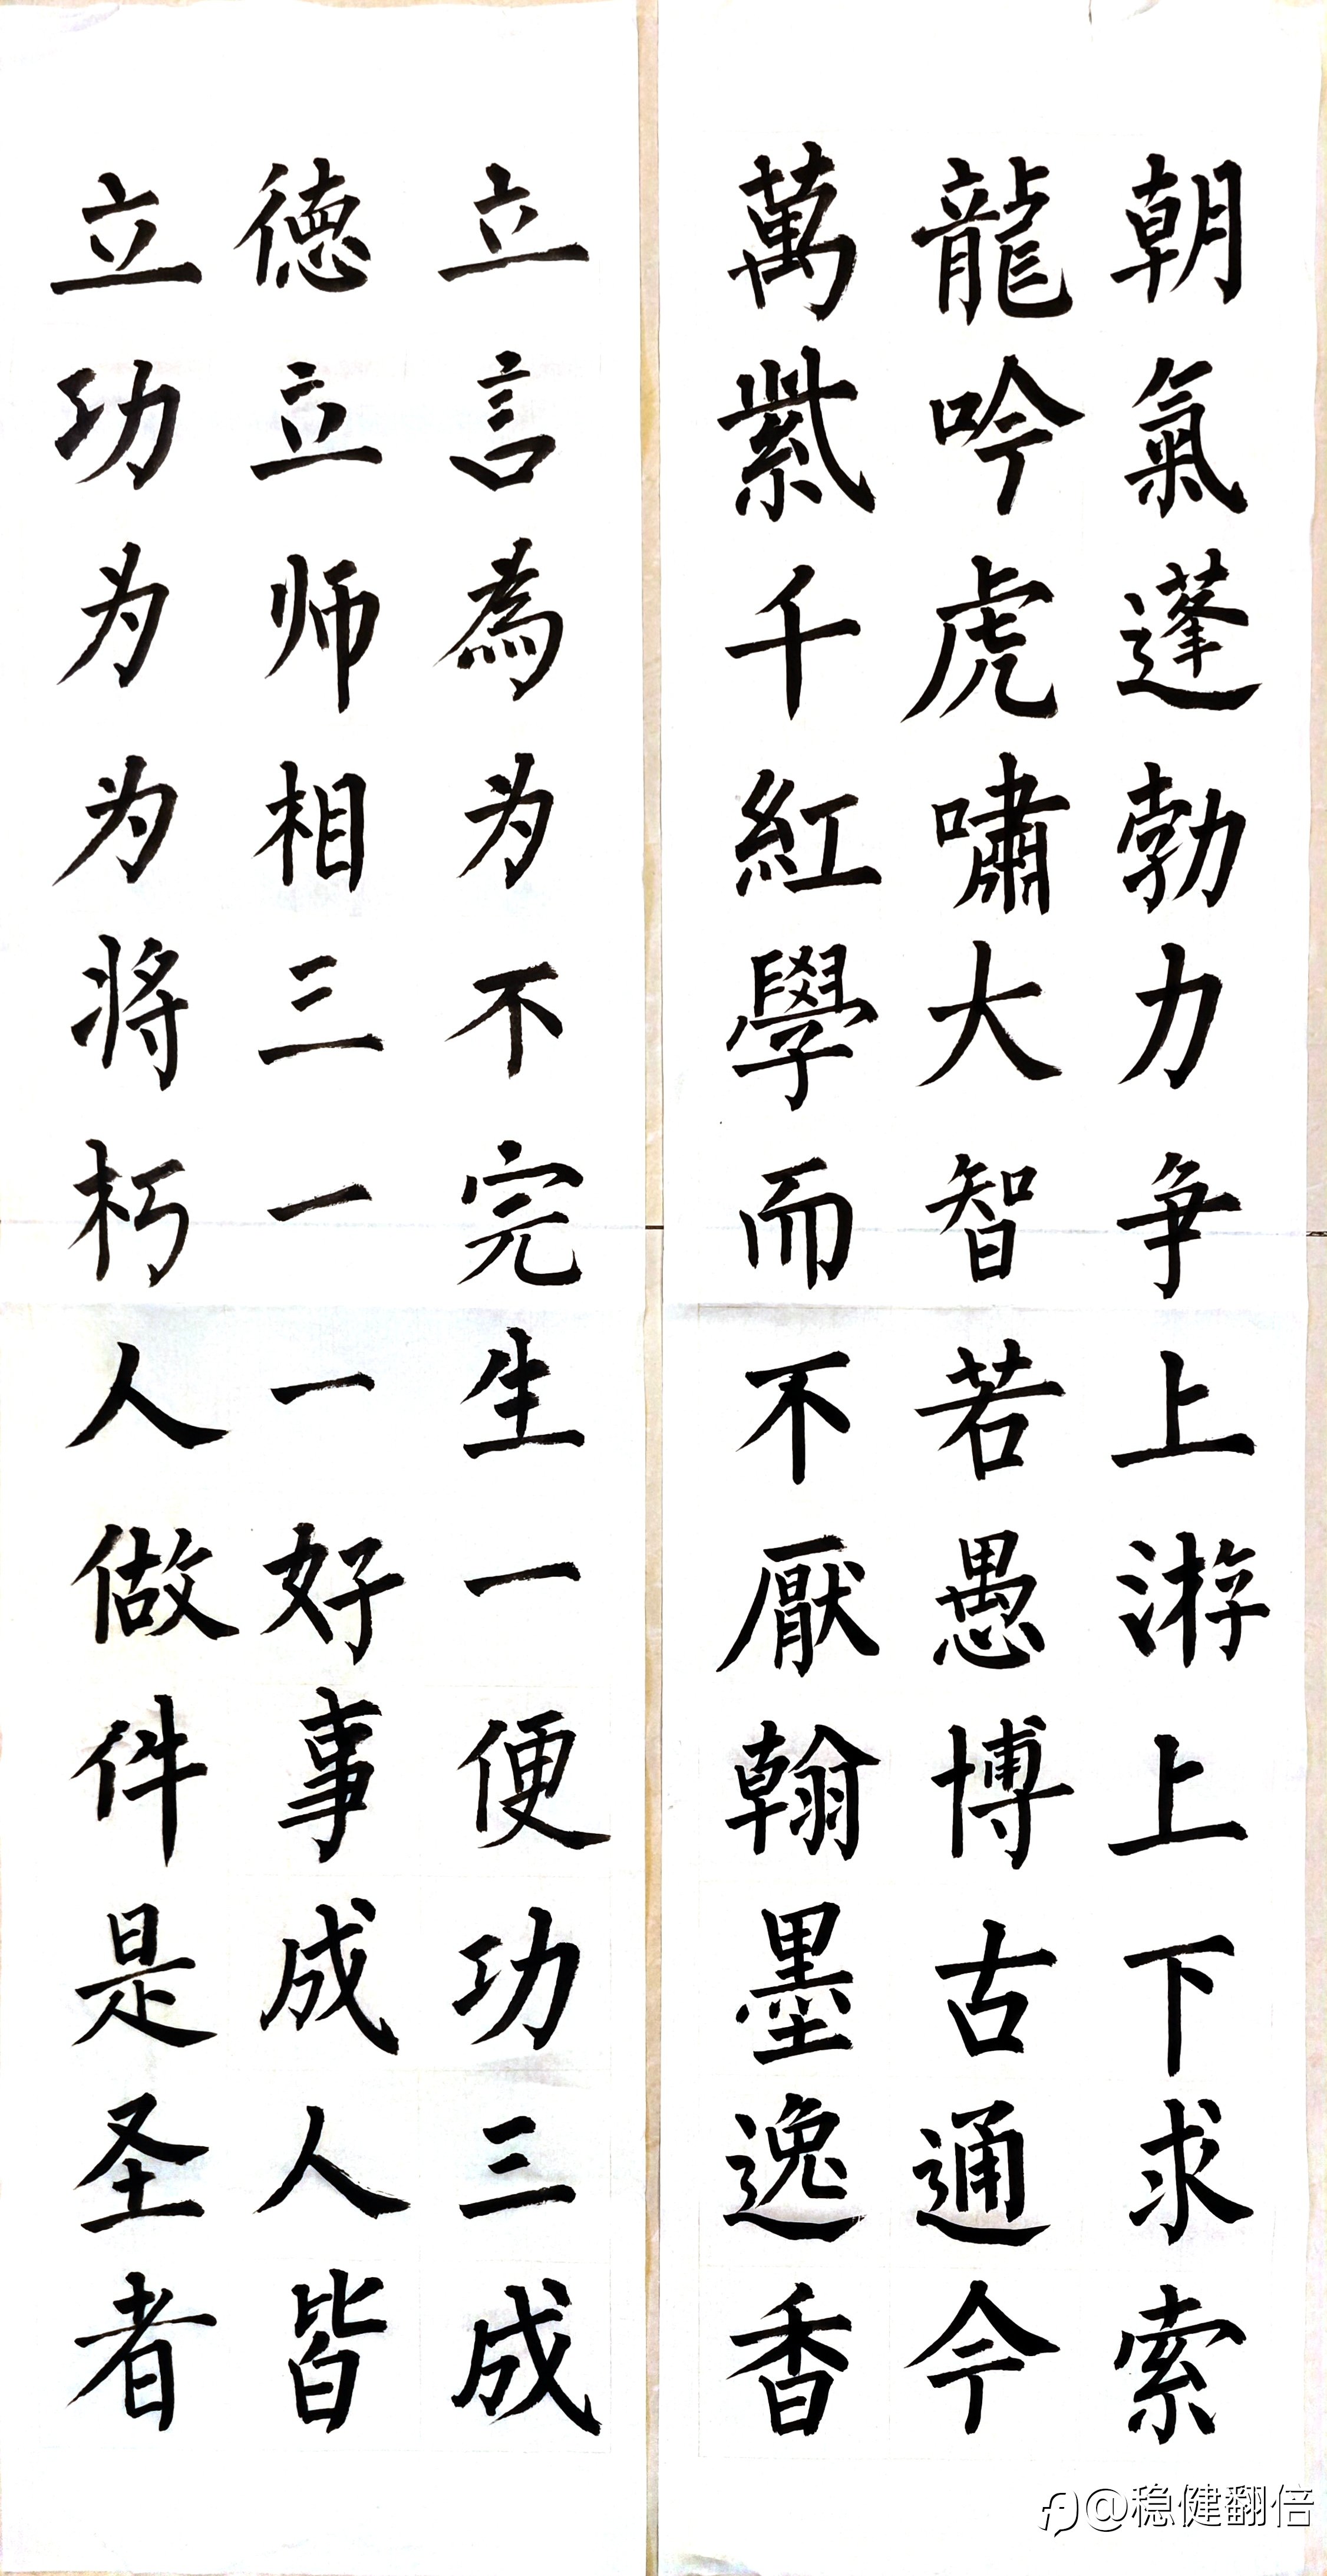 朝氣蓬勃力争上游上下求索
龍吟虎嘯大智若愚博古通今
萬紫千紅學而不厭翰墨逸香
立言為为不完生一便功三成
德立师相三一一好事成人皆
立功为为将朽人做件是圣者
@稳健翻倍